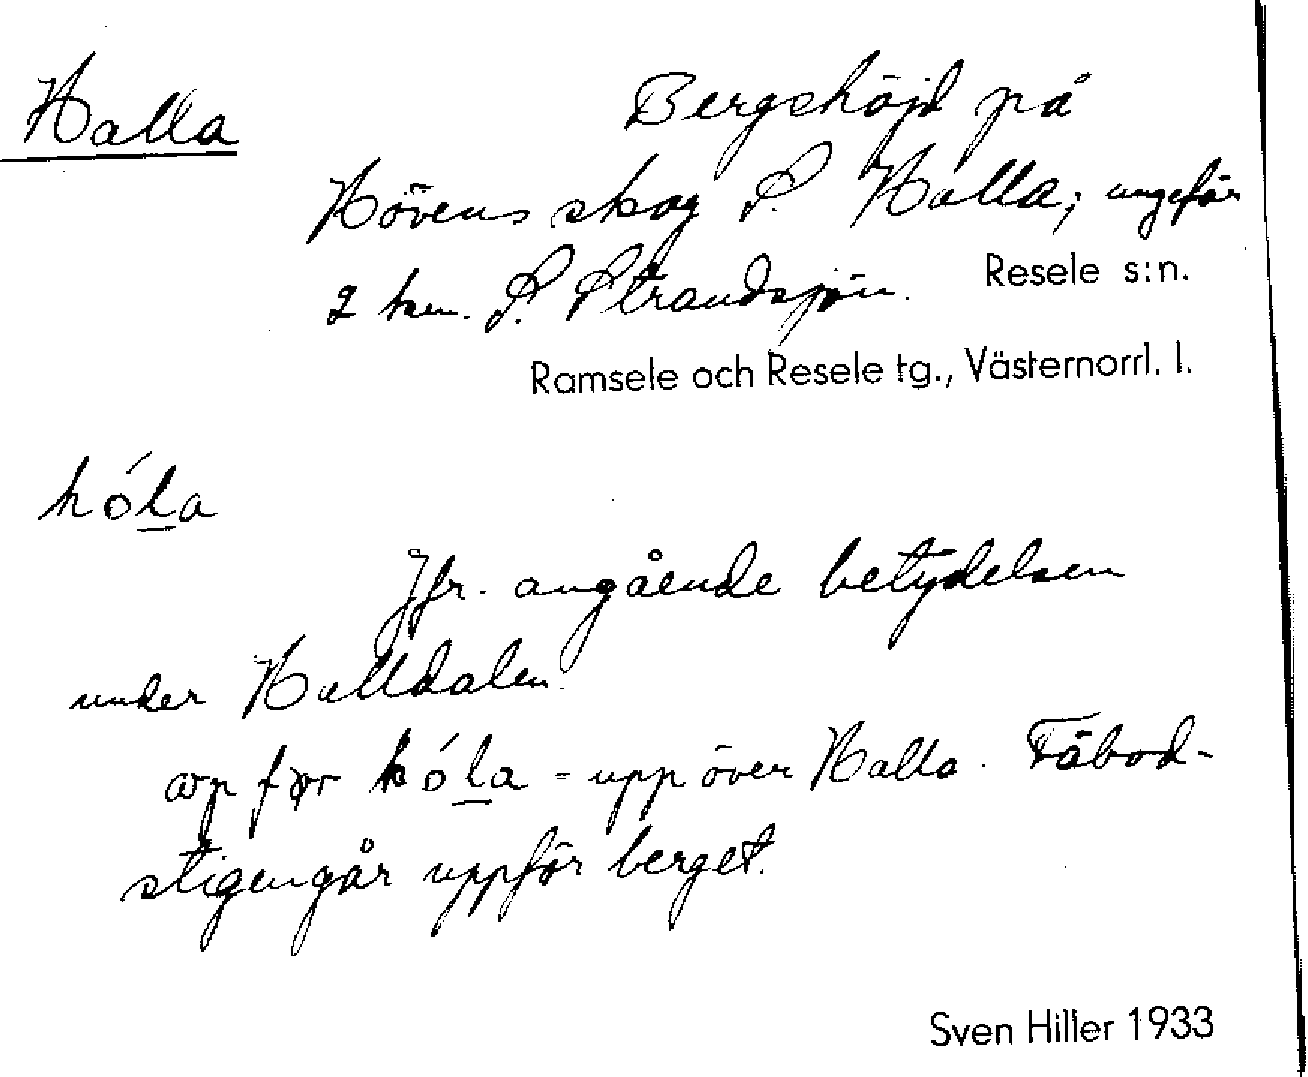 Halla
Bergshöjd på
Hövens skog S. Halla; ungefär
2 km. S. Strandsjön.
Resele s:n.
Ramsele och Resele tg., Västernorrl. l.
hóḻa
Jfr. angående betydelsen
under Halldalen.
fər hóḻa - upp över Halla. Fäbod-
stigen går uppför berget.
Sven Hiller 1933